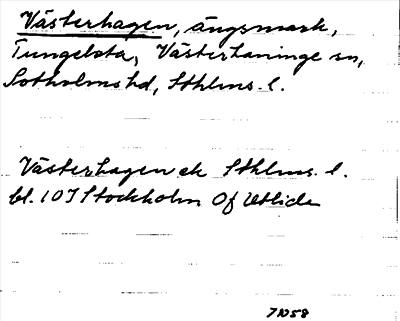 Västerhagen, ängsmark,
Tungelsta, Västerhaninge sn,
Sotholms hd, Sthlms. l.
Västerhagen ek Sthlms. l.
bl. 10J Stockholm Of